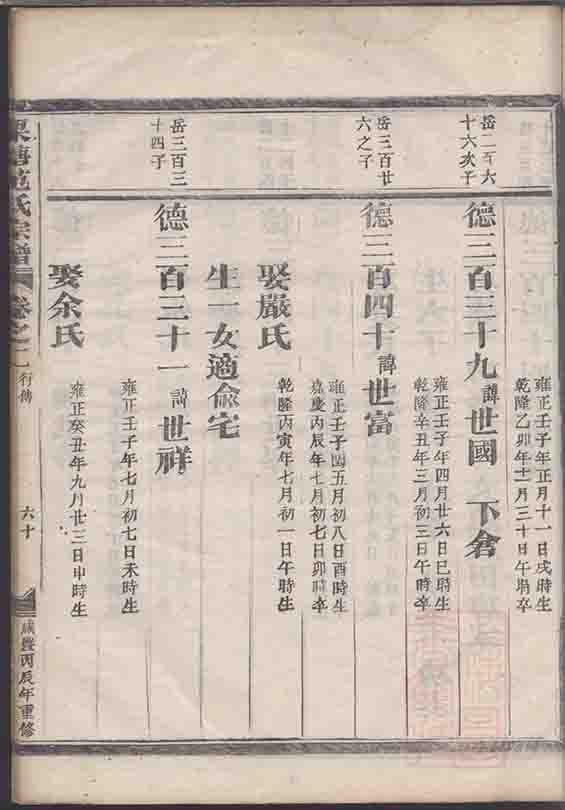 雍正壬子年正月十一日戌時生
乾隆乙卯年十一月三十日午時卒
岳二百六
十六次子
德三百三十九諱世國 下倉
雍正壬子年四月廿六日巳時生
乾隆辛丑年三月初三日午時卒
岳三百廿
六之子
德三百四十諱世富
雍正壬子閏五月初八日酉時生
嘉慶丙辰年七月初七日卯時卒
娶嚴氏
乾隆丙寅年七月初一日午時生
生一女適俞宅
岳三百三
十四子
德三百三十一諱世祥
雍正壬子年七月初七日未時生
娶余氏
雍正癸丑年九月廿三日申時生
范氏宗譜 卷之二 行傳 六十 咸豐丙辰年重修